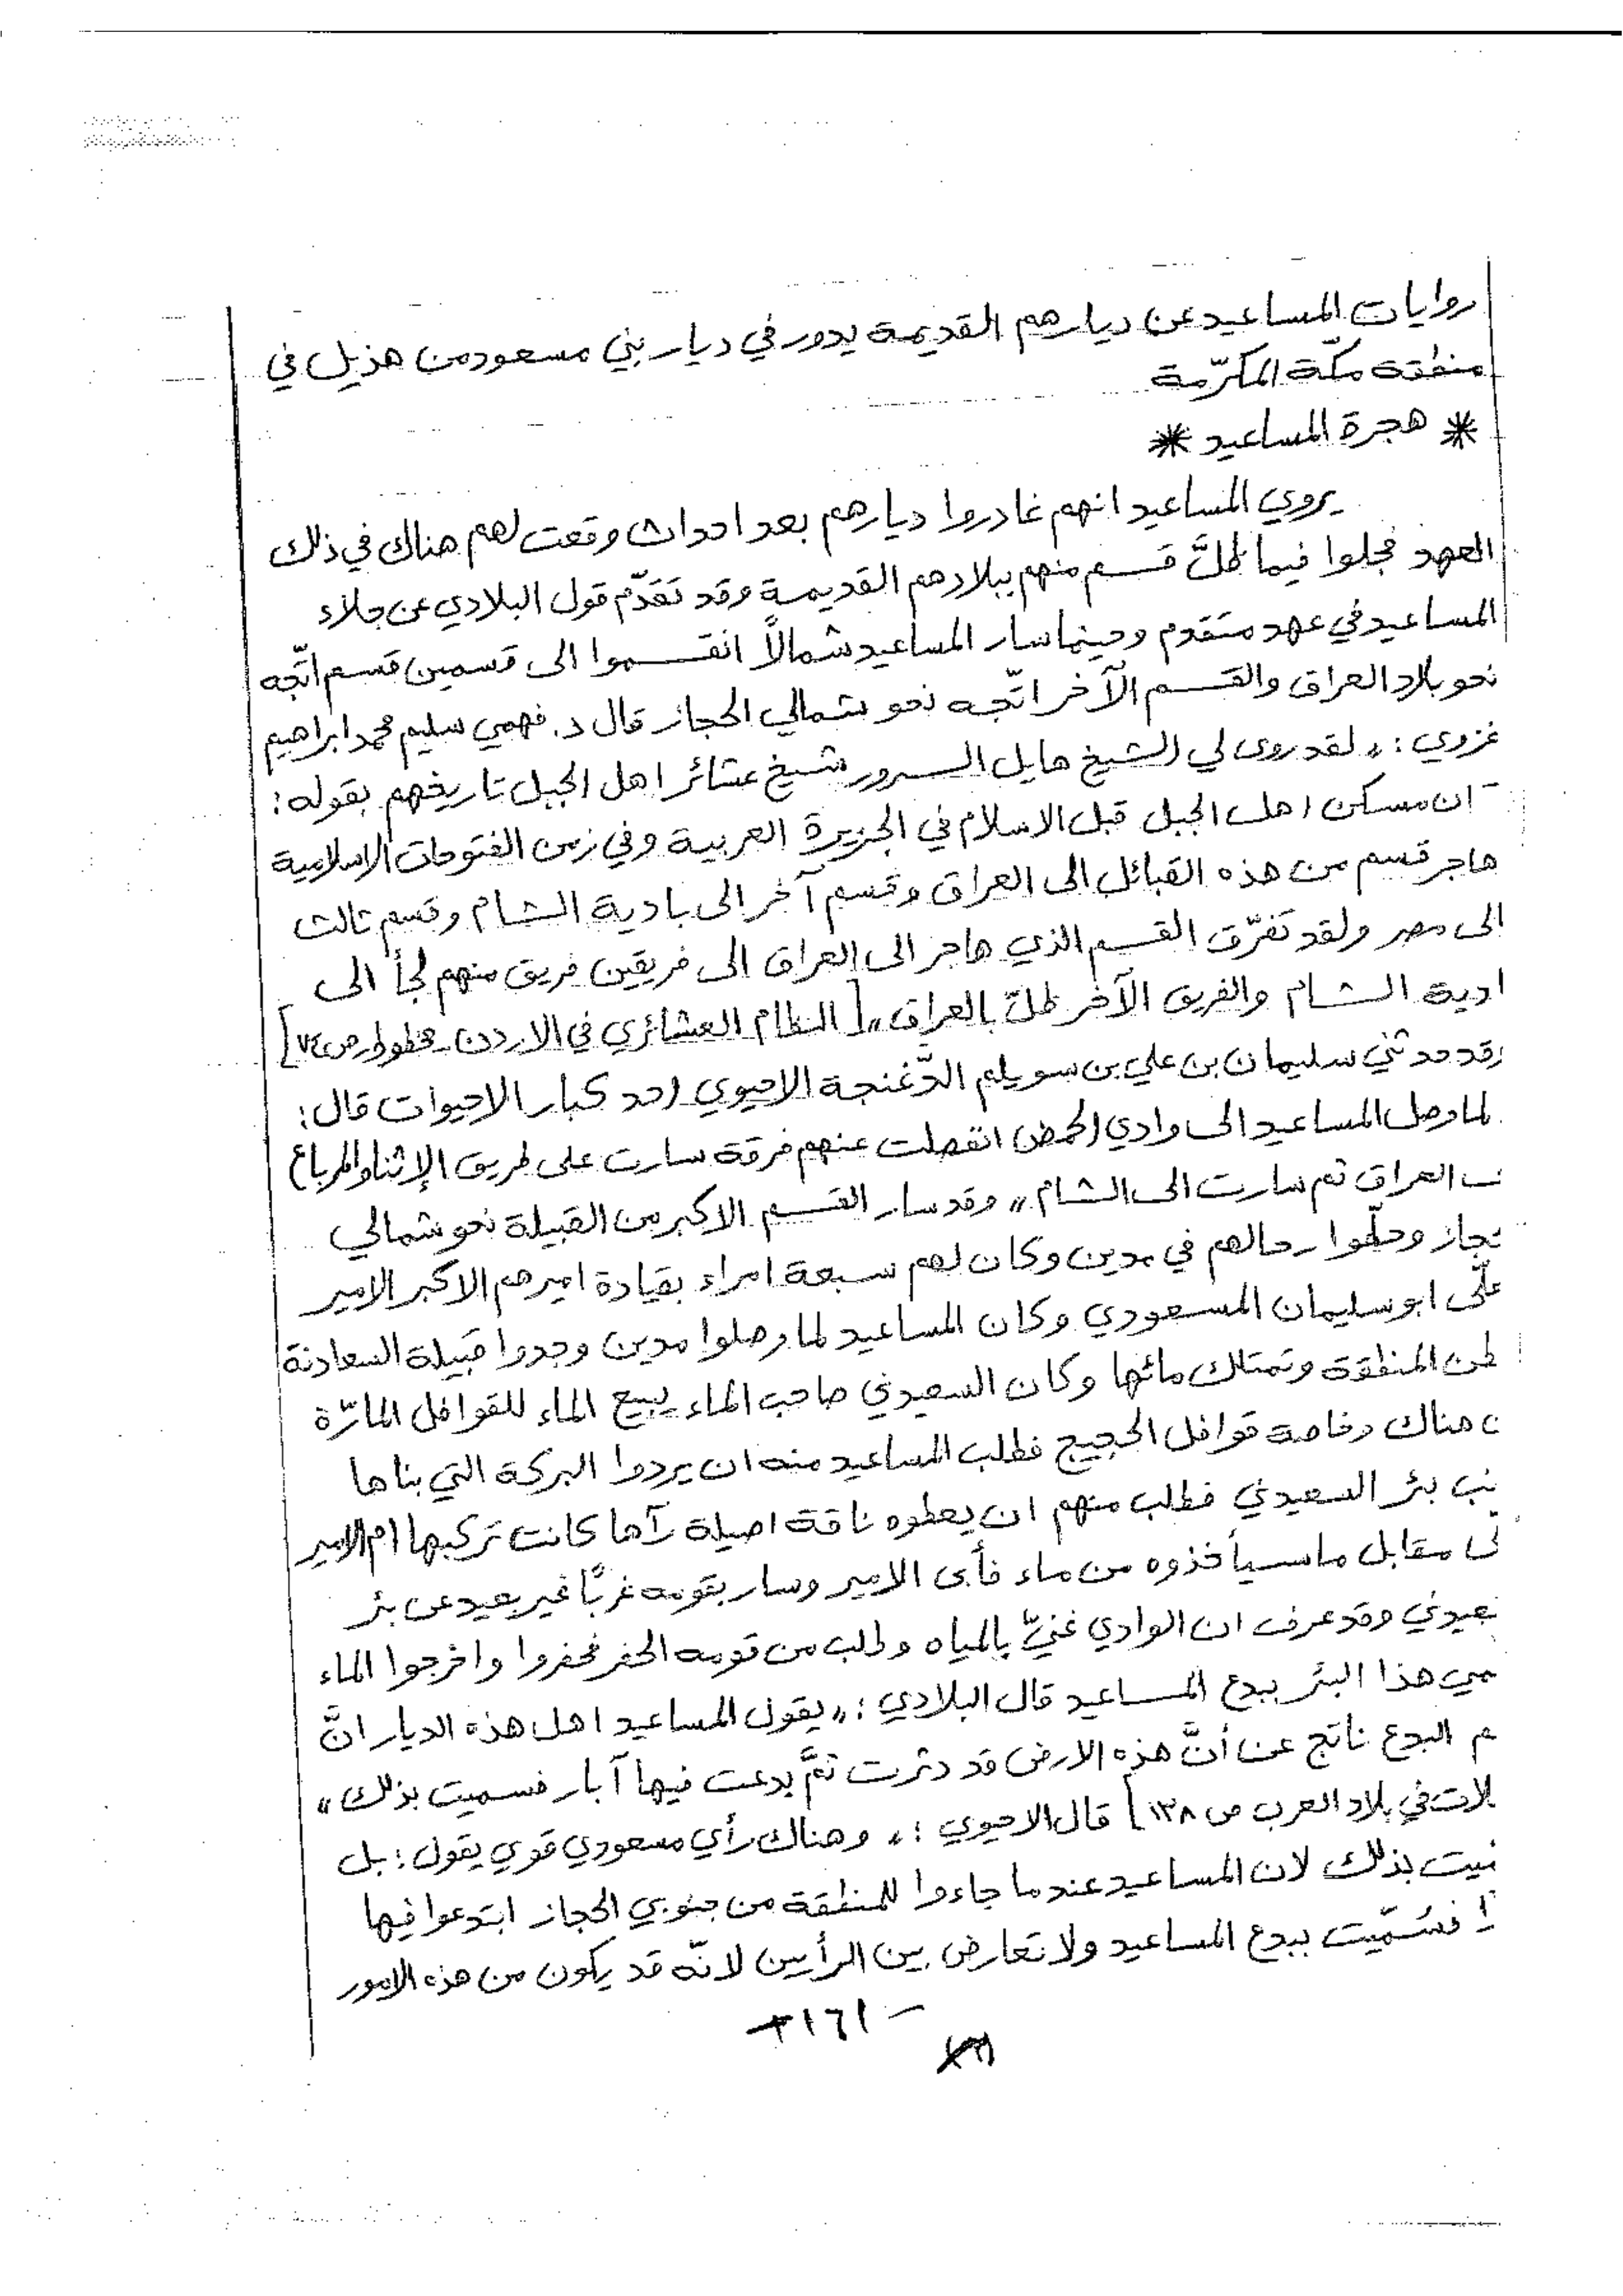 روايات المساعيد عن ديارهم القديمة يدور في ديار بني مسعود من هذيل في
منطقة مكّة المكرّمة
* هجرة المساعيد *
يروي المساعيد انهم غادروا ديارهم بعد احداث وقعت لهم هناك في ذلك
العهد فجلوا فيما ظلَّ قسم منهم ببلادهم القديمة وقد تقدّم قول البلادي عن جلاء
المساعيد في عهد متقدم وحينما سار المساعيد شمالاً انقسموا الى قسمين قسم اتّجه
نحو بلاد العراق والقسم الآخر اتّجه نحو شمالي الحجاز قال د. فهمي سليم محمد ابراهيم
غزوي: „ لقد روى لي الشيخ هايل السرور شيخ عشائر اهل الجبل تاريخهم بقوله:
- ان مسكن اهل الجبل قبل الاسلام في الجزيرة العربية وفي زمن الفتوحات الاسلامية
هاجر قسم من هذه القبائل الى العراق وقسم آخر الى بادية الشام وقسم ثالث
الى مصر ولقد تفرّق القسم الذي هاجر الى العراق الى فريقين فريق منهم لجأ الى
ادية الشام والفريق الآخر ظلّ بالعراق „ [ النظام العشائري في الاردن - مخطوط ص ٧٤ ]
وقد حدثني سليمان بن علي بن سويلم الدّغنجة الاحيوي احد كبار الاحيوات قال:
لما وصل المساعيد الى وادي الحمض انفصلت عنهم فرقة سارت على طريق الإثنا والمرباع
ـب العراق ثم سارت الى الشام „ وقد سار القسم الاكبر من القبيلة نحو شمالي
ـجاز وحلّوا رحالهم في مدين وكان لهم سبعة امراء بقيادة اميرهم الاكبر الامير
علّي ابو سليمان المسعودي وكان المساعيد لما وصلوا مدين وجدوا قبيلة السعادنة
طن المنطقة وتمتلك مائها وكان السعيدني صاحب الماء يبيع الماء للقوافل المارّة
ن هناك وخاصة قوافل الحجيج فطلب المساعيد منه ان يردوا البركة التي بناها
ـنب بئر السعيدني فطلب منهم ان يعطوه ناقة اصيلة رآها كانت تركبها ام الامير
ـى مقابل ما سيأخذوه من ماء فأبى الامير وسار بقومه غربًا غير بعيد عن بئر
ـعيدني وقد عرف ان الوادي غنيّ بالمياه وطلب من قومه الحفر فحفروا واخرجوا الماء
ـمي هذا البئر ببدع المساعيد قال البلادي: „ يقول المساعيد اهل هذه الديار انَّ
ـم البدع ناتج عن أنَّ هذه الارض قد دثرت ثمَّ بدعت فيها آبار فسميت بذلك „
ـلات في بلاد العرب ص ١٣٨ ] قال الاحيوي: „ وهناك رأي مسعودي قوي يقول: بل
ـميت بذلك لان المساعيد عندما جاءوا للمنطقة من جنوبي الحجاز ابتدعوا فيها
ـا فسُمّيت ببدع المساعيد ولا تعارض بين الرأيين لانّه قد يكون من هذه الامور
- ١٦١ -